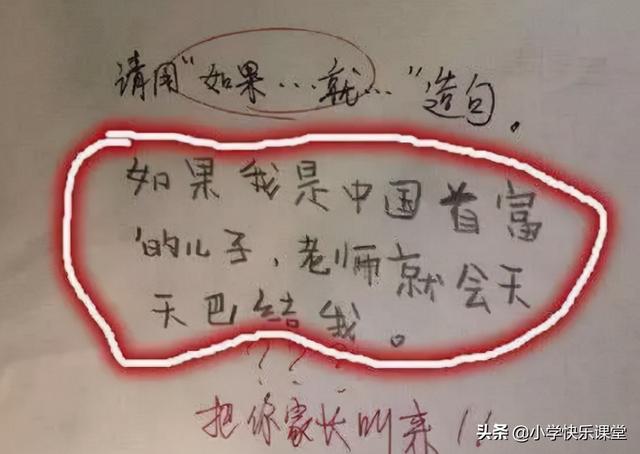 请用“如果…就…”造句。
如果我是中国首富
的儿子，老师就会天
天巴结我。
？？？
把你家长叫来！！
头条 @小学快乐课堂